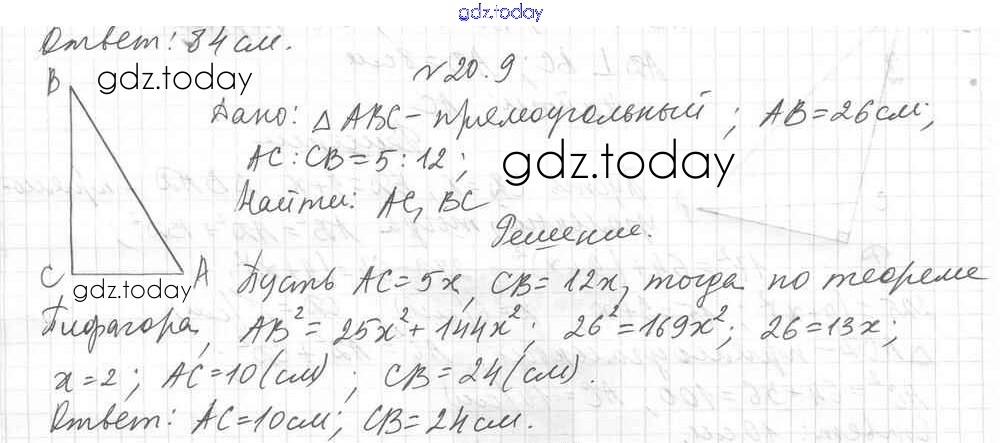 gdz.today
Ответ: 84 см.
№ 20.9
B
gdz.today
Дано: △ ABC - прямоугольный ; AB = 26 см;
AC : CB = 5 : 12 ;
gdz.today
Найти: AC, BC
Решение.
C
A
gdz.today
Пусть AC = 5x, CB = 12x, тогда по теореме
Пифагора, AB² = 25x² + 144x² ; 26² = 169x² ; 26 = 13x ;
x = 2 ; AC = 10 (см) ; CB = 24 (см).
Ответ: AC = 10 см ; CB = 24 см.